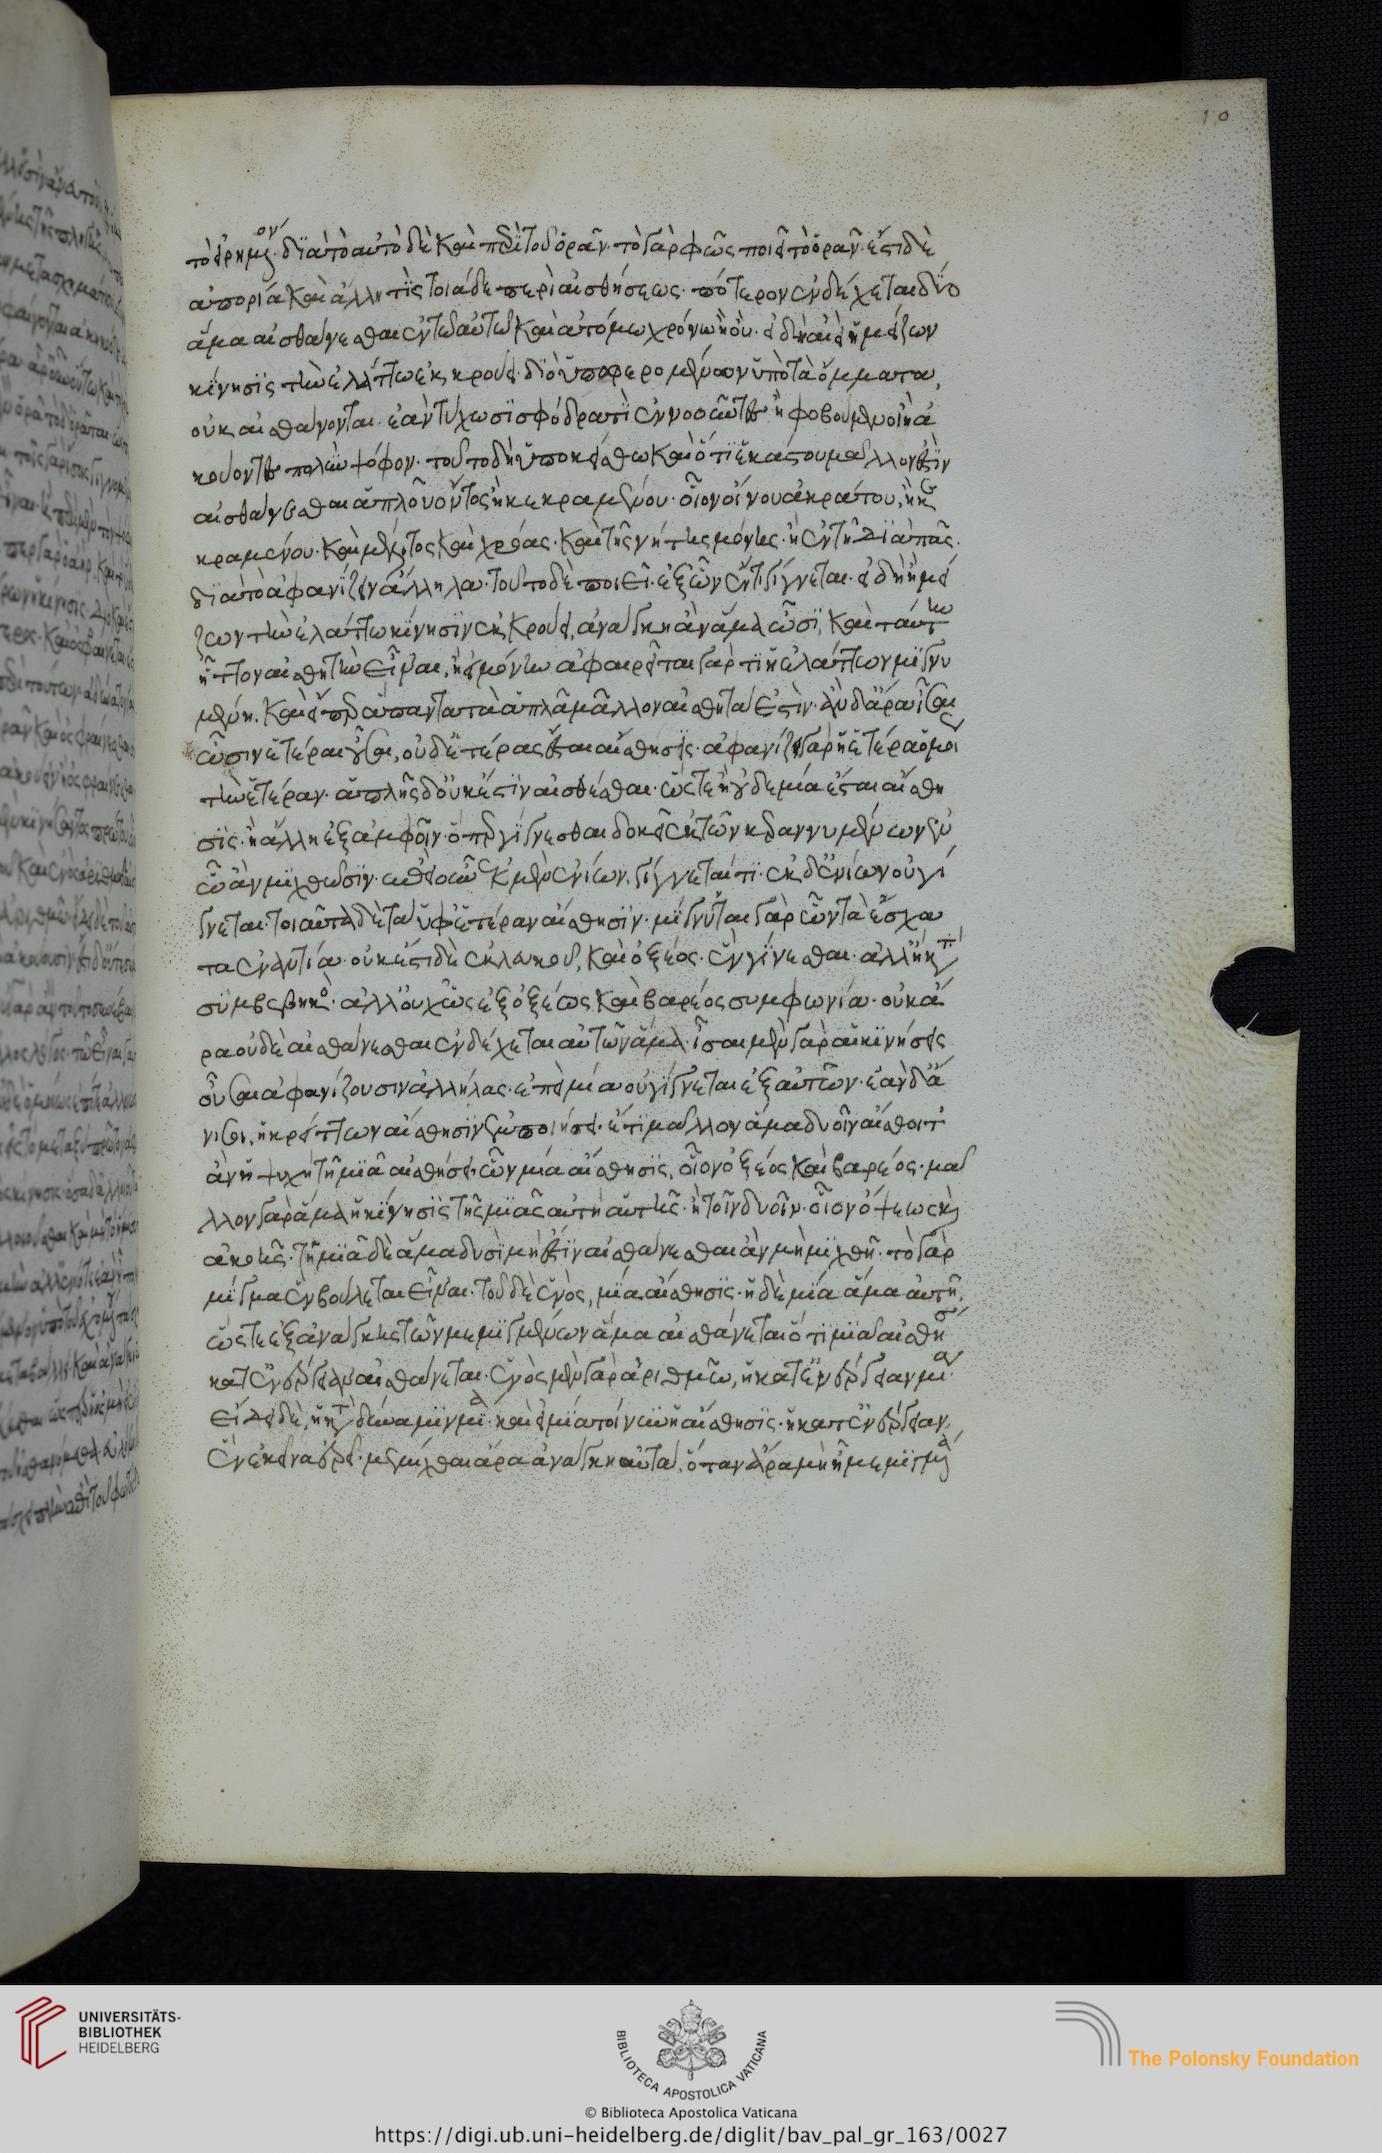 10
τὸ εἰρημένον· διὰ τὸ αὐτὸ δὲ καὶ περὶ τοῦ ὁρᾶν· τὸ γὰρ φῶς ποιεῖ τὸ ὁρᾶν· ἔστι δὲ
ἀπορία καὶ ἄλλη τὶς τοιάδε περὶ αἰσθήσεως· πότερον ἐνδέχεται δύο
ἅμα αἰσθάνεσθαι ἐν τῶ αὐτῶ καὶ ἀτόμω χρόνω ἢ οὔ· εἰ δὴ αἰεὶ ἡ μείζων
κίνησις τὴν ἐλάττω ἐκκρούει· διὸ ὑποφερομένων ὑπὸ τὰ ὄμματα,
οὐκ αἰσθάνονται· ἐὰν τύχωσι σφόδρα τὶ ἐννοοῦντες ἢ φοβούμενοι ἢ ἀ
κούοντες πολὺν ψόφον· τοῦτο δὴ ὑποκείσθω καὶ ὅτι ἑκάστου μᾶλλον ἔστιν
αἰσθάνεσθαι ἁπλοῦ ὄντος ἢ κεκραμένου· οἷον οἴνου ἀκράτου, ἢ κε
κραμένου· καὶ μέλιτος καὶ χρόας· καὶ τῆς νήτης μόνης· ἢ ἐν τῆ διαπασ.
διὰ τὸ ἀφανίζειν ἄλληλα· τοῦτο δὲ ποιεῖ· ἐξ ὧν ἕν τι γίγνεται· εἰ δὴ ἡ μεί
ζων τὴν ἐλάττω κίνησιν ἐκκρούει, ἀνάγκη ἂν ἅμα ὦσι, καὶ ταύτην
ἧττον αἰσθητὴν εἶναι, ἢ εἰ μόνη ἀφαιρεῖται γάρ τι ἡ ἐλάττων μιγνυ
μένη. καὶ εἴπερ ἅπαντα τὰ ἁπλᾶ μᾶλλον αἰσθητά ἐστιν· ἐὰν δ' ἄρα ἴσαι
ὦσιν ἕτεραι οὖσαι, οὐδετέρας ἔσται αἴσθησις· ἀφανίζει γὰρ ἡ ἑτέρα ὁμοί
τὴν ἑτέραν· ἁπλῆς δ' οὐκ ἔστιν αἰσθέσθαι· ὥστε ἢ οὐδεμία ἔσται αἴσθη
σις· ἢ ἄλλη ἐξ ἀμφοῖν· ὅπερ γίγνεσθαι δοκεῖ ἐκ τῶν κεραννυμένων ἐν
ὧ ἂν μιχθῶσιν· ἐκ μὲν ἐνίων, γίγνεταί τι· ἐκ δ' ἐνίων οὐ γί
γνεται· τοιαῦτα δὲ τὰ ὑφ' ἑτέραν αἴσθησιν· μίγνυται γὰρ ὧν τὰ ἔσχα
τα ἐναντία· οὐκ ἔστι δὲ ἐκ λευκοῦ, καὶ ὀξέος· ἓν γίνεσθαι· ἀλλ' ἢ κατὰ
συμβεβηκός· ἀλλ' οὐχ ὡς ἐξ ὀξέως καὶ βαρέος συμφωνία· οὐκ ἄ
ρα οὐδὲ αἰσθάνεσθαι ἐνδέχεται αὐτῶν ἅμα· ἴσαι μὲν γὰρ αἱ κινήσεις
οὖσαι ἀφανίζουσιν ἀλλήλας· ἐπεὶ μία οὐ γίγνεται ἐξ αὐτῶν· ἐὰν δ' ἄ
νισοι, ἡ κρείττων αἴσθησιν ἐμποιήσει· ἔτι μᾶλλον ἅμα δυοῖν αἴσθοιτ'
ἂν ἡ ψυχὴ τῆ μιᾶ αἰσθήσει· ὧν μία αἴσθησις, οἷον ὀξέος καὶ βαρέος· μᾶ
λλον γὰρ ἅμα ἡ κίνησις τῆς μιᾶς αὐτὴ αὑτῆς· ἢ τοῖν δυοῖν· οἷον ὄψεως καὶ
ἀκοῆς· τῆ μιᾶ δὲ ἅμα δυσὶ μὴ ἔστιν αἰσθάνεσθαι ἂν μὴ μιχθῆ· τὸ γὰρ
μίγμα ἓν βούλεται εἶναι· τοῦ δὲ ἑνὸς, μία αἴσθησις· ἡ δὲ μία ἅμα αὐτῆ,
ὥστε ἐξ ἀνάγκης τῶν μεμιγμένων ἅμα αἰσθάνεται ὅτι μιᾶ αἰσθήσει
κατ' ἐνέργειαν αἰσθάνεται· ἑνὸς μὲν γὰρ ἀριθμῶ, ἡ κατ' ἐνέργειαν μία
εἴδει δὲ, ἡ κατὰ δύναμιν μία· καὶ εἰ μία τοίνυν ἡ αἴσθησις· ἡ κατ' ἐνέργειαν,
ἓν ἐκεῖνα ἐρεῖ· μεμῖχθαι ἄρα ἀνάγκη αὐτά· ὅταν ἄρα μὴ ἦ μεμιγμένα
UNIVERSITÄTS-
BIBLIOTHEK
HEIDELBERG
BIBLIOTECA APOSTOLICA VATICANA
The Polonsky Foundation
© Biblioteca Apostolica Vaticana
https://digi.ub.uni-heidelberg.de/diglit/bav_pal_gr_163/0027